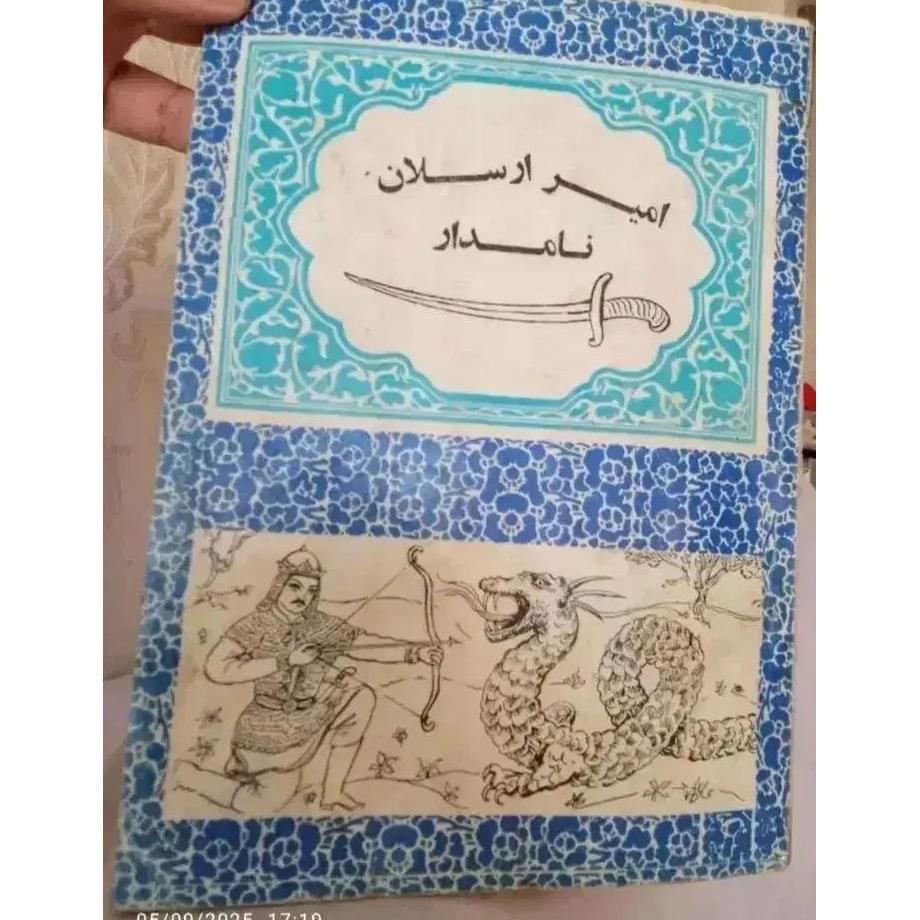 امیر ارسلان
نامدار
05/09/2025 17:19